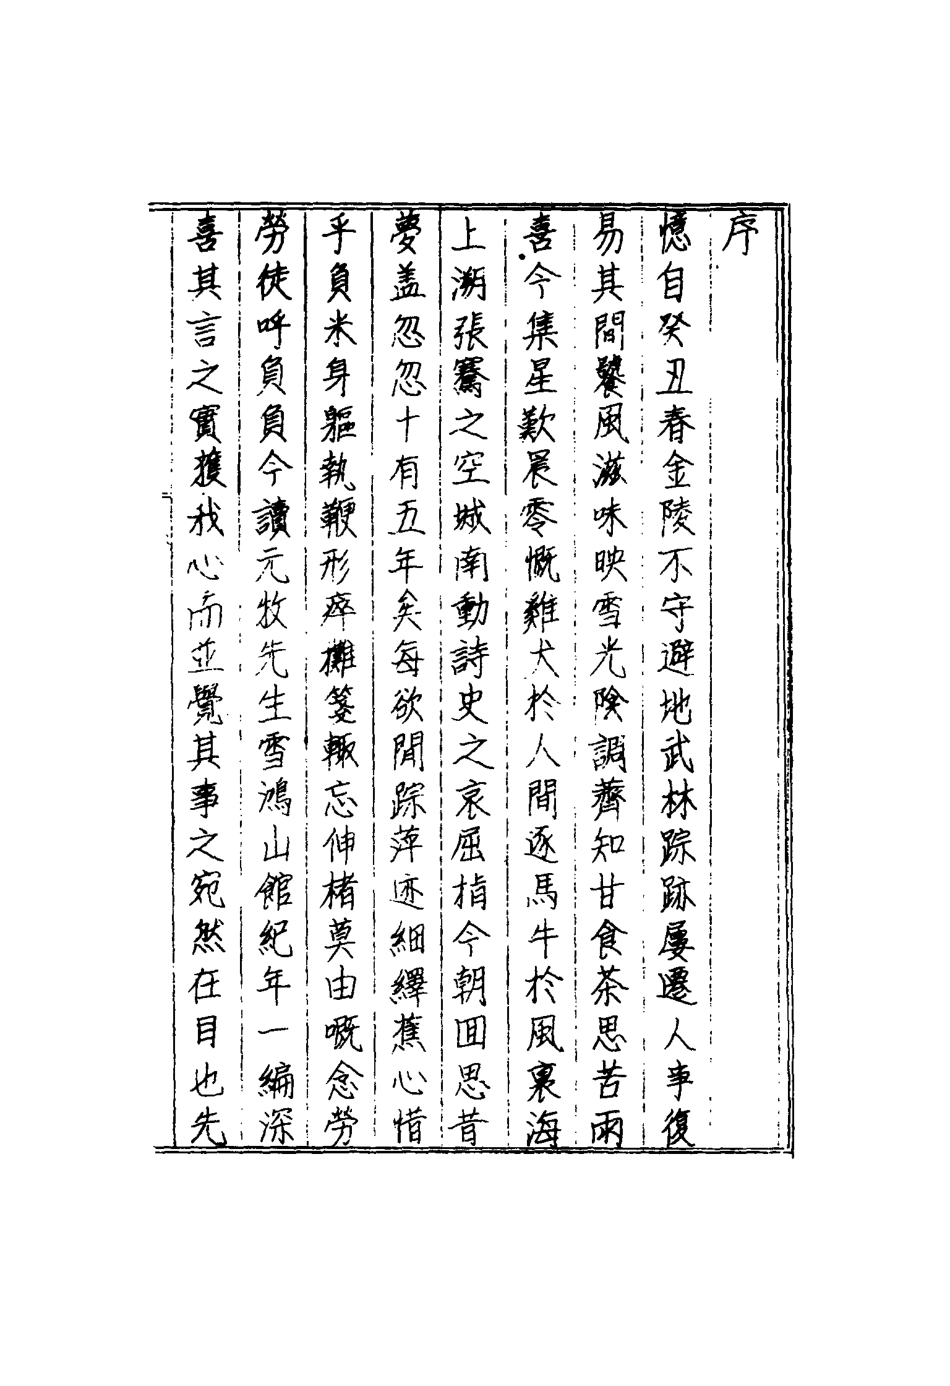 序
憶自癸丑春金陵不守避地武林踪跡屡遷人事復
易其間饕風滋味映雪光陰調薺知甘食茶思苦雨
喜今集星歎晨零慨雞犬於人間逐馬牛於風裏海
上溯張騫之空城南動詩史之哀屈指今朝囬思昔
夢盖忽忽十有五年矣每欲閒踪萍迹細繹蕉心惜
乎負米身軀執鞭形瘁攤箋輙忘伸楮莫由嘅念勞
勞徒呼負負今讀元牧先生雪鴻山館紀年一編深
喜其言之實獲我心而並覺其事之宛然在目也先